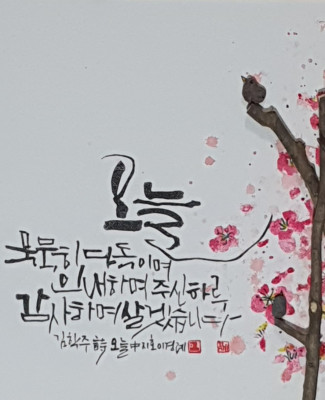 오늘
묵묵히 다독이며
인내하며 주신 하루
감사하며 살겠습니다
김학주 詩 오늘 中